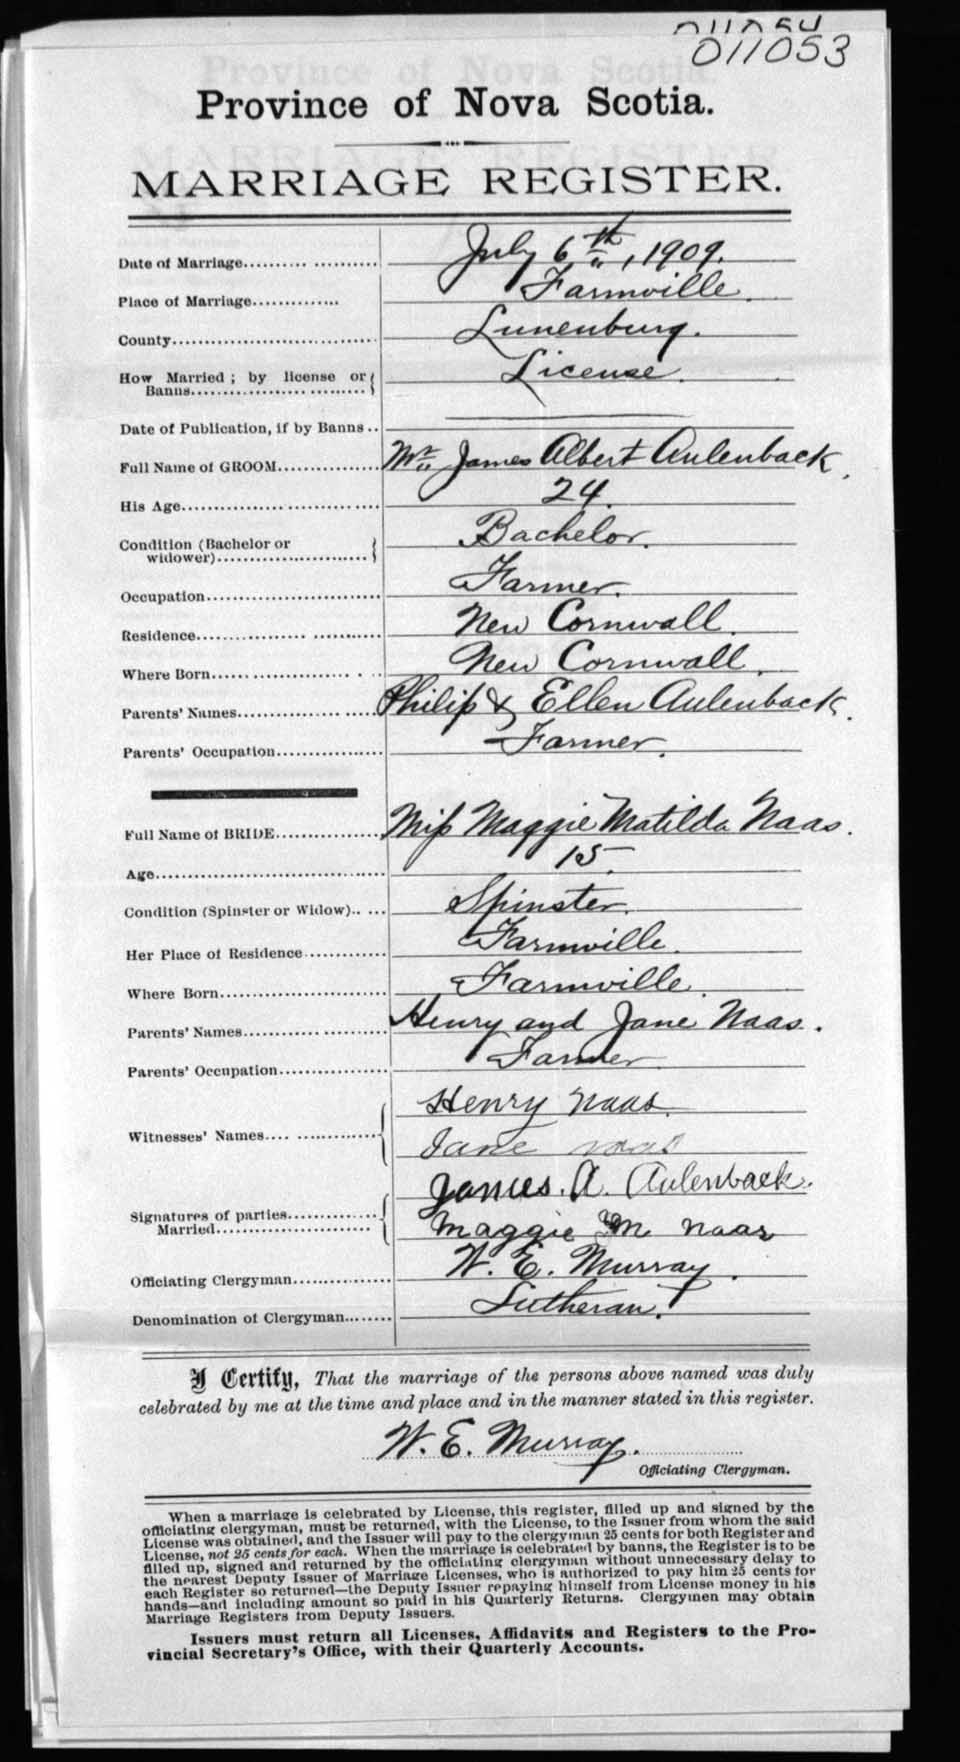 011054
011053
Province of Nova Scotia.
MARRIAGE REGISTER.
Date of Marriage July 6th, 1909.
Place of Marriage Farmville.
County Lunenburg.
How Married ; by license or
Banns License.
Date of Publication, if by Banns
Full Name of GROOM Mr. James Albert Aulenback,
His Age 24.
Condition (Bachelor or
widower) Bachelor.
Occupation Farmer.
Residence New Cornwall.
Where Born New Cornwall.
Parents' Names Philip & Ellen Aulenback.
Parents' Occupation Farmer.
Full Name of BRIDE Miss Maggie Matilda Naas.
Age 15.
Condition (Spinster or Widow) Spinster.
Her Place of Residence Farmville.
Where Born Farmville.
Parents' Names Henry and Jane Naas.
Parents' Occupation Farmer.
Witnesses' Names Henry Naas.
Jane Naas
Signatures of parties
Married James. A. Aulenback.
Maggie M Naas
Officiating Clergyman W. E. Murray.
Denomination of Clergyman Lutheran.
I Certify, That the marriage of the persons above named was duly
celebrated by me at the time and place and in the manner stated in this register.
W. E. Murray.
Officiating Clergyman.
When a marriage is celebrated by License, this register, filled up and signed by the
officiating clergyman, must be returned, with the License, to the Issuer from whom the said
License was obtained, and the Issuer will pay to the clergyman 25 cents for both Register and
License, not 25 cents for each. When the marriage is celebrated by banns, the Register is to be
filled up, signed and returned by the officiating clergyman without unnecessary delay to
the nearest Deputy Issuer of Marriage Licenses, who is authorized to pay him 25 cents for
each Register so returned—the Deputy Issuer repaying himself from License money in his
hands—and including amount so paid in his Quarterly Returns. Clergymen may obtain
Marriage Registers from Deputy Issuers.
Issuers must return all Licenses, Affidavits and Registers to the Pro-
vincial Secretary's Office, with their Quarterly Accounts.